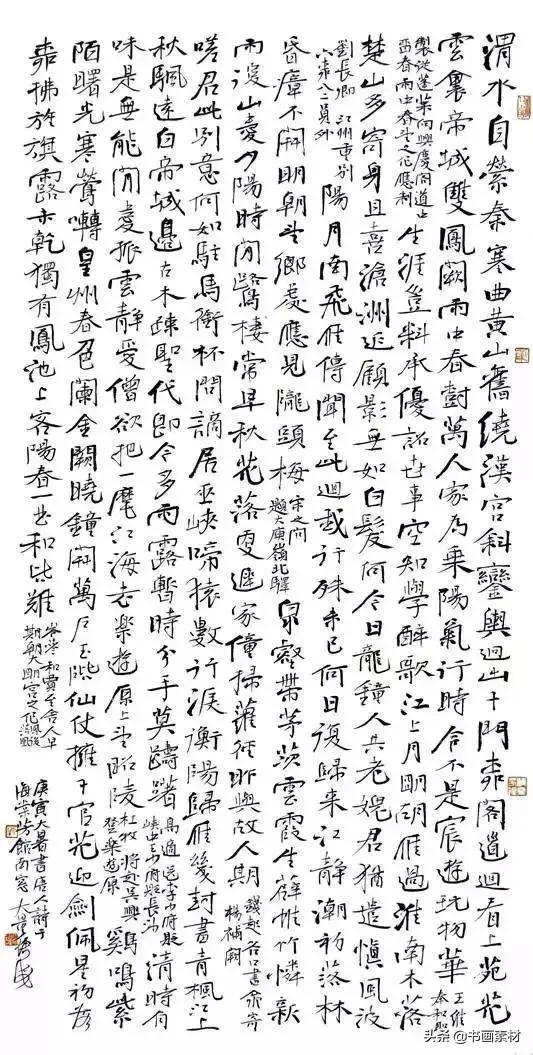 渭水自縈秦塞曲黃山舊繞漢宮斜鑾輿迥出千門柳閣道迴看上苑花
雲裏帝城雙鳳闕雨中春樹萬人家為乘陽氣行時令不是宸遊玩物華王維奉和聖
製從蓬萊向興慶閣道中
留春雨中春望之作應制
生涯豈料承優詔世事空知學醉歌江上月明胡雁過淮南木落
楚山多寄身且喜滄洲近顧影無如白髮何今日龍鍾人共老媿君猶遣慎風波
劉長卿江州重別
六柳八二員外
陽月南飛雁傳聞至此迴我行殊未已何日復歸來江靜潮初落林
昏瘴不開明朝望鄉處應見隴頭梅宋之問題大庾嶺北驛泉壑帶茅茨雲霞生薜帷竹憐新
雨後山愛夕陽時閒鷺棲常早秋花落更遲家僮掃蘿徑昨與故人期錢起谷口書齋寄楊補闕
嗟君此別意何如駐馬銜杯問謫居巫峽啼猿數行淚衡陽歸雁幾封書青楓江上
秋颿遠白帝城邊古木疎聖代即今多雨露暫時分手莫躊躇高適送李少府貶峽中王少府貶長沙清時有
味是無能閒愛孤雲靜愛僧欲把一麾江海去樂遊原上望昭陵杜牧將赴吳興登樂遊原雞鳴紫
陌曙光寒鶯囀皇州春色闌金闕曉鐘開萬戶玉階仙仗擁千官花迎劍佩星初落
柳拂旌旗露未乾獨有鳳池上客陽春一曲和皆難
岑參和賈至舍人早
朝大明宮之作
庚寅大暑書唐人詩于
海棠芳館南窗
头条 @书画素材